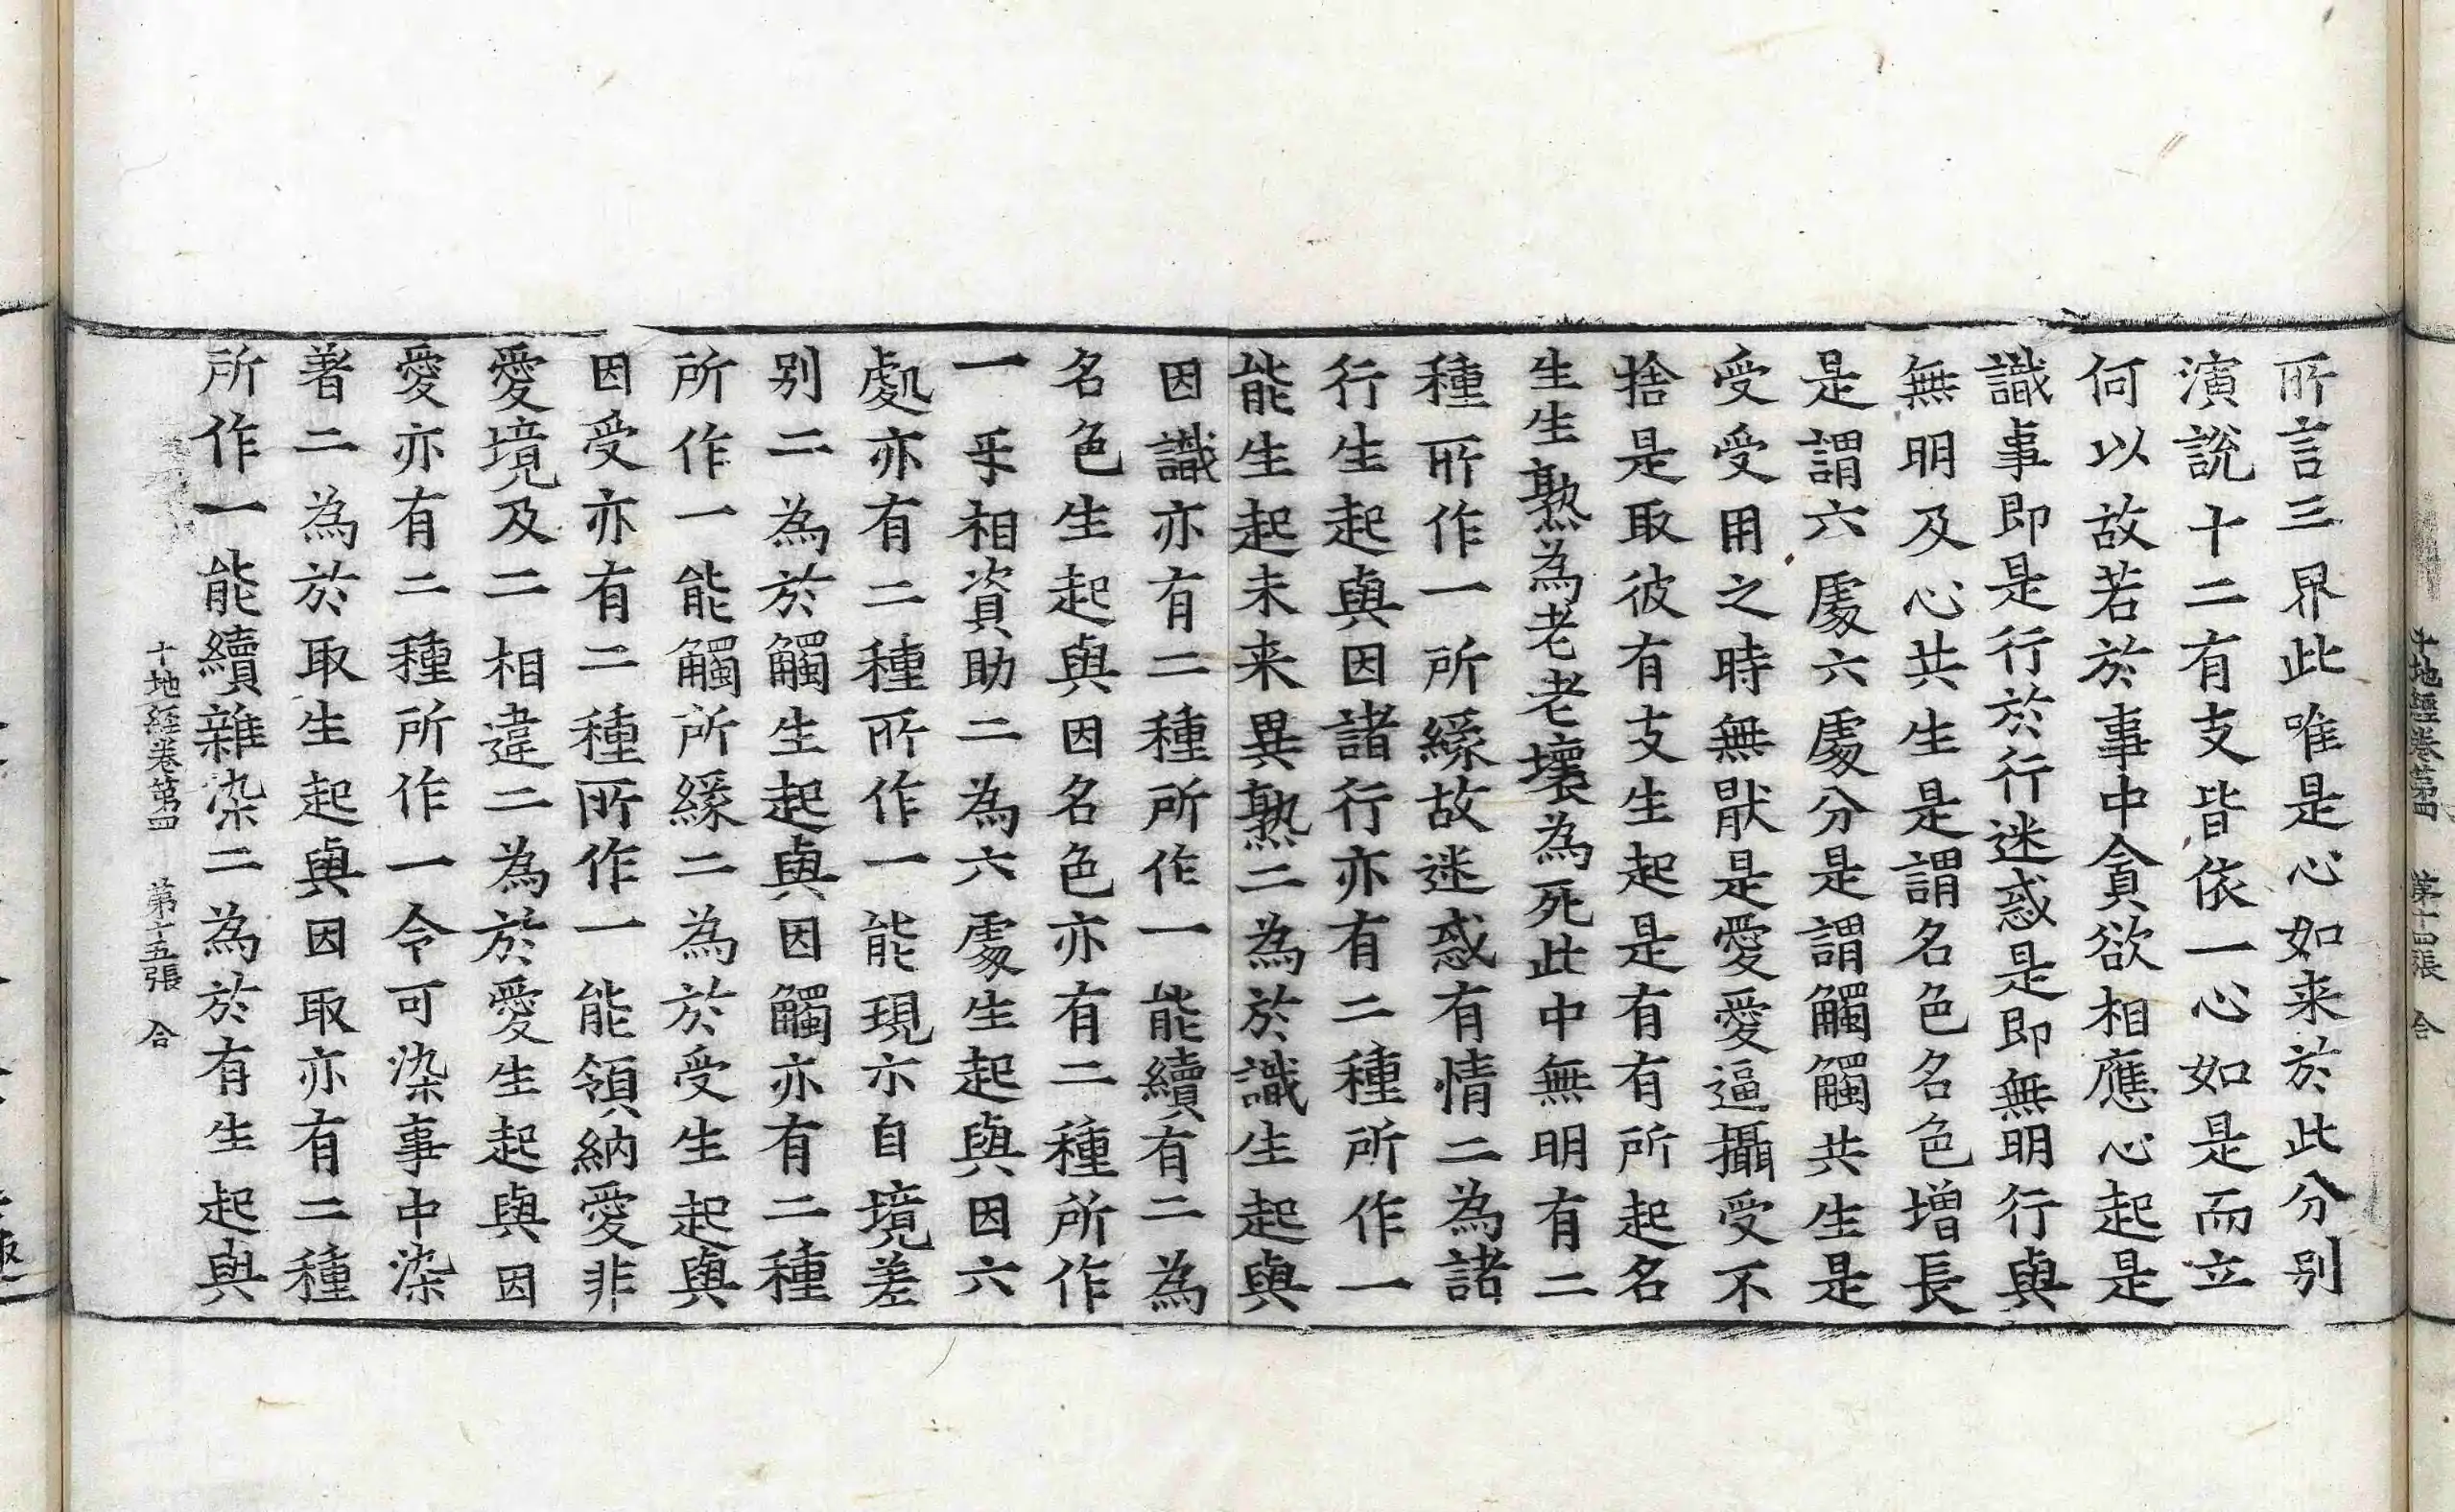 十地經卷第四　第十四張　合
所言三界此唯是心如来於此分别
演說十二有支皆依一心如是而立
何以故若於事中貪欲相應心起是
識事即是行於行迷惑是即無明行與
無明及心共生是謂名色名色增長
是謂六處六處分是謂觸觸共生是
受受用之時無猒是愛愛逼攝受不
捨是取彼有支生起是有有所起名
生生熟為老老壞為死此中無明有二
種所作一所緣故迷惑有情二為諸
行生起與因諸行亦有二種所作一
能生起未来異熟二為於識生起與
因識亦有二種所作一能續有二為
名色生起與因名色亦有二種所作
一㸦相資助二為六處生起與因六
處亦有二種所作一能現示自境差
别二為於觸生起與因觸亦有二種
所作一能觸所緣二為於受生起與
因受亦有二種所作一能領納愛非
愛境及二相違二為於愛生起與因
愛亦有二種所作一令可染事中染
著二為於取生起與因取亦有二種
所作一能續雜染二為於有生起與
十地經卷第四　第十五張　合